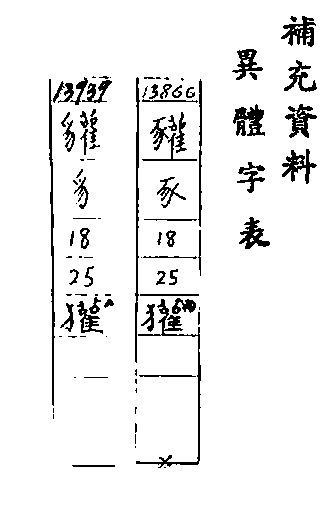 補充資料
異體字表
13866
䝔
豕
18
25
獾
13939
貛
豸
18
25
獾